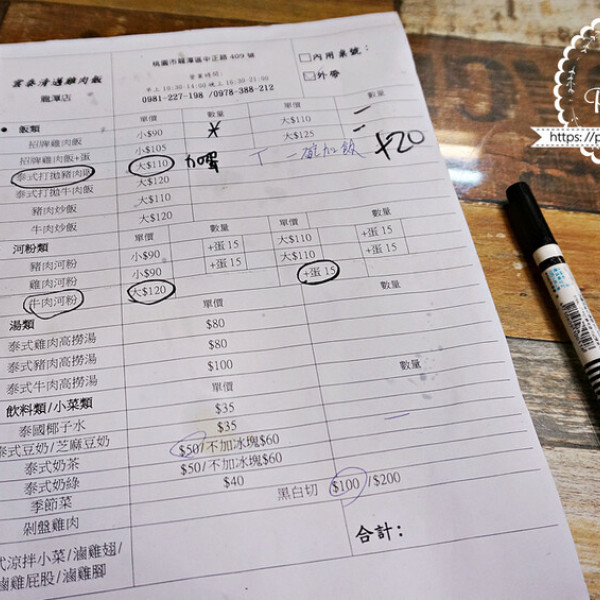 雲泰清邁雞肉飯
龍潭店
桃園市龍潭區中正路 469 號
營業時間:
早上10:30-14:00 晚上16:30-21:00
0981-227-198 /0978-388-212
□內用桌號:
□外帶
● 飯類 單價 數量 單價 數量
招牌雞肉飯 小$90 大$110
招牌雞肉飯+蛋 小$105 大$125
泰式打拋豬肉飯 大$110 加蛋 一碗加飯 +20
泰式打拋牛肉飯 大$120
豬肉炒飯 大$110
牛肉炒飯 大$120
河粉類 單價 數量 單價 數量
豬肉河粉 小$90 +蛋 15 大$110 +蛋 15
雞肉河粉 小$90 +蛋 15 大$110 +蛋 15
牛肉河粉 大$120 +蛋 15
湯類 單價 數量
泰式雞肉高撈湯 $80
泰式豬肉高撈湯 $80
泰式牛肉高撈湯 $100
飲料類/小菜類 單價 數量
泰國椰子水 $35
泰式豆奶/芝麻豆奶 $35
泰式奶茶 $50/不加冰塊$60
泰式奶綠 $50/不加冰塊$60
季節菜 $40
剁盤雞肉 黑白切 $100 /$200
式涼拌小菜/滷雞翅/
滷雞屁股/滷雞腳
合計:
https://p